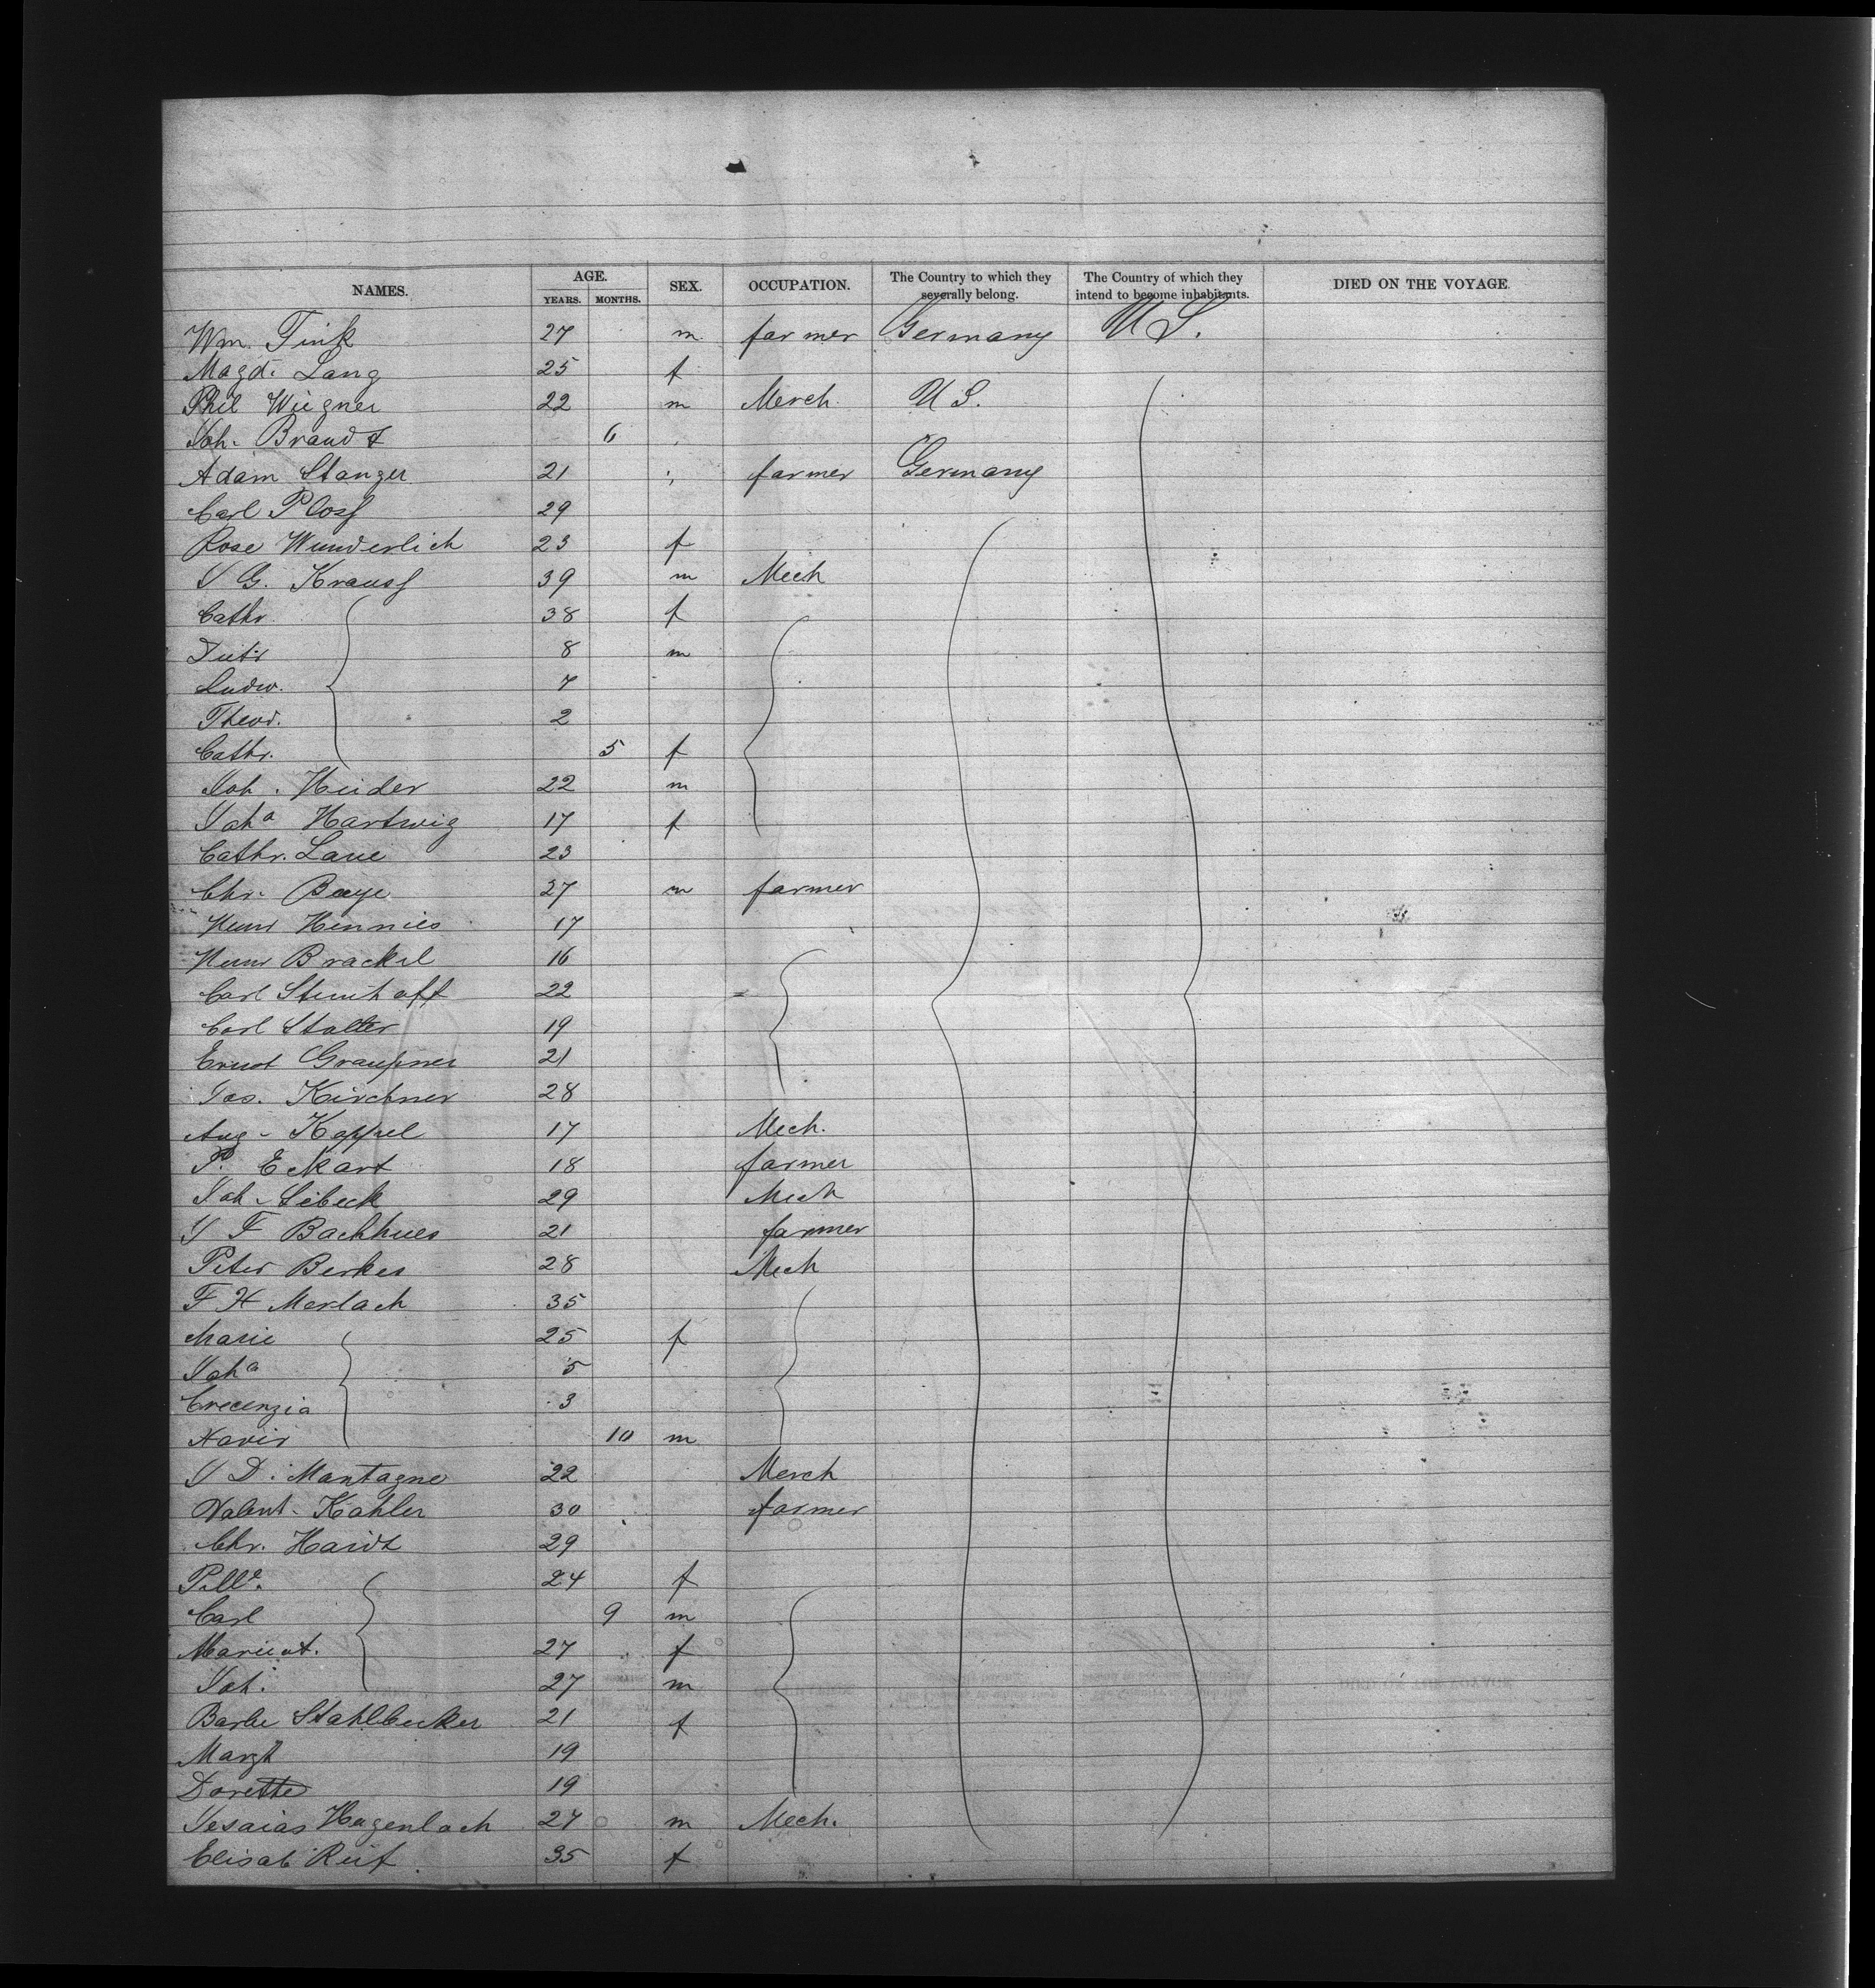 NAMES. AGE. SEX. OCCUPATION. The Country to which they severally belong. The Country of which they intend to become inhabitants. DIED ON THE VOYAGE.
YEARS. MONTHS.
Wm. Fink 27 m farmer Germany U S.
Magd. Lang 25 f
Phil Wiegner 22 m Merch. U S.
Joh. Brandt 6
Adam Stanger 21 farmer Germany
Carl Ploss 29
Rose Wunderlich 23 f
J G. Krauss 39 m Mech
Cathr. 38 f
Dietr 8 m
Ludw. 7
Theod. 2
Cathr. 5 f
Joh. Heider 22 m
Joha Hartwig 17 f
Cathr. Laue 23
Chr. Baye 27 m farmer
Heinr Hennies 17
Heinr Brackel 16
Carl Steinhoff 22
Carl Stalter 19
Ernst Graupner 21
Jos. Kirchner 28
Aug. Koppel 17 Mech.
P. Eckart 18 farmer
Joh. Sebeck 29 Mech
J F Backhues 21 farmer
Peter Berkes 28 Mech
F H Merlach 35
Marie 25 f
Joha 5
Crecenzia 3
Xavir 10 m
J D. Mantagne 22 Merch
Valent. Kahler 30 farmer
Chr. Haidt 29
24 f
Carl 9 m
27 f
Joh. 27 m
Barbe Stahlbecker 21 f
Margt 19
Dorette 19
Jesaias Hagenlach 27 m Mech.
Elisab Reif 35 f